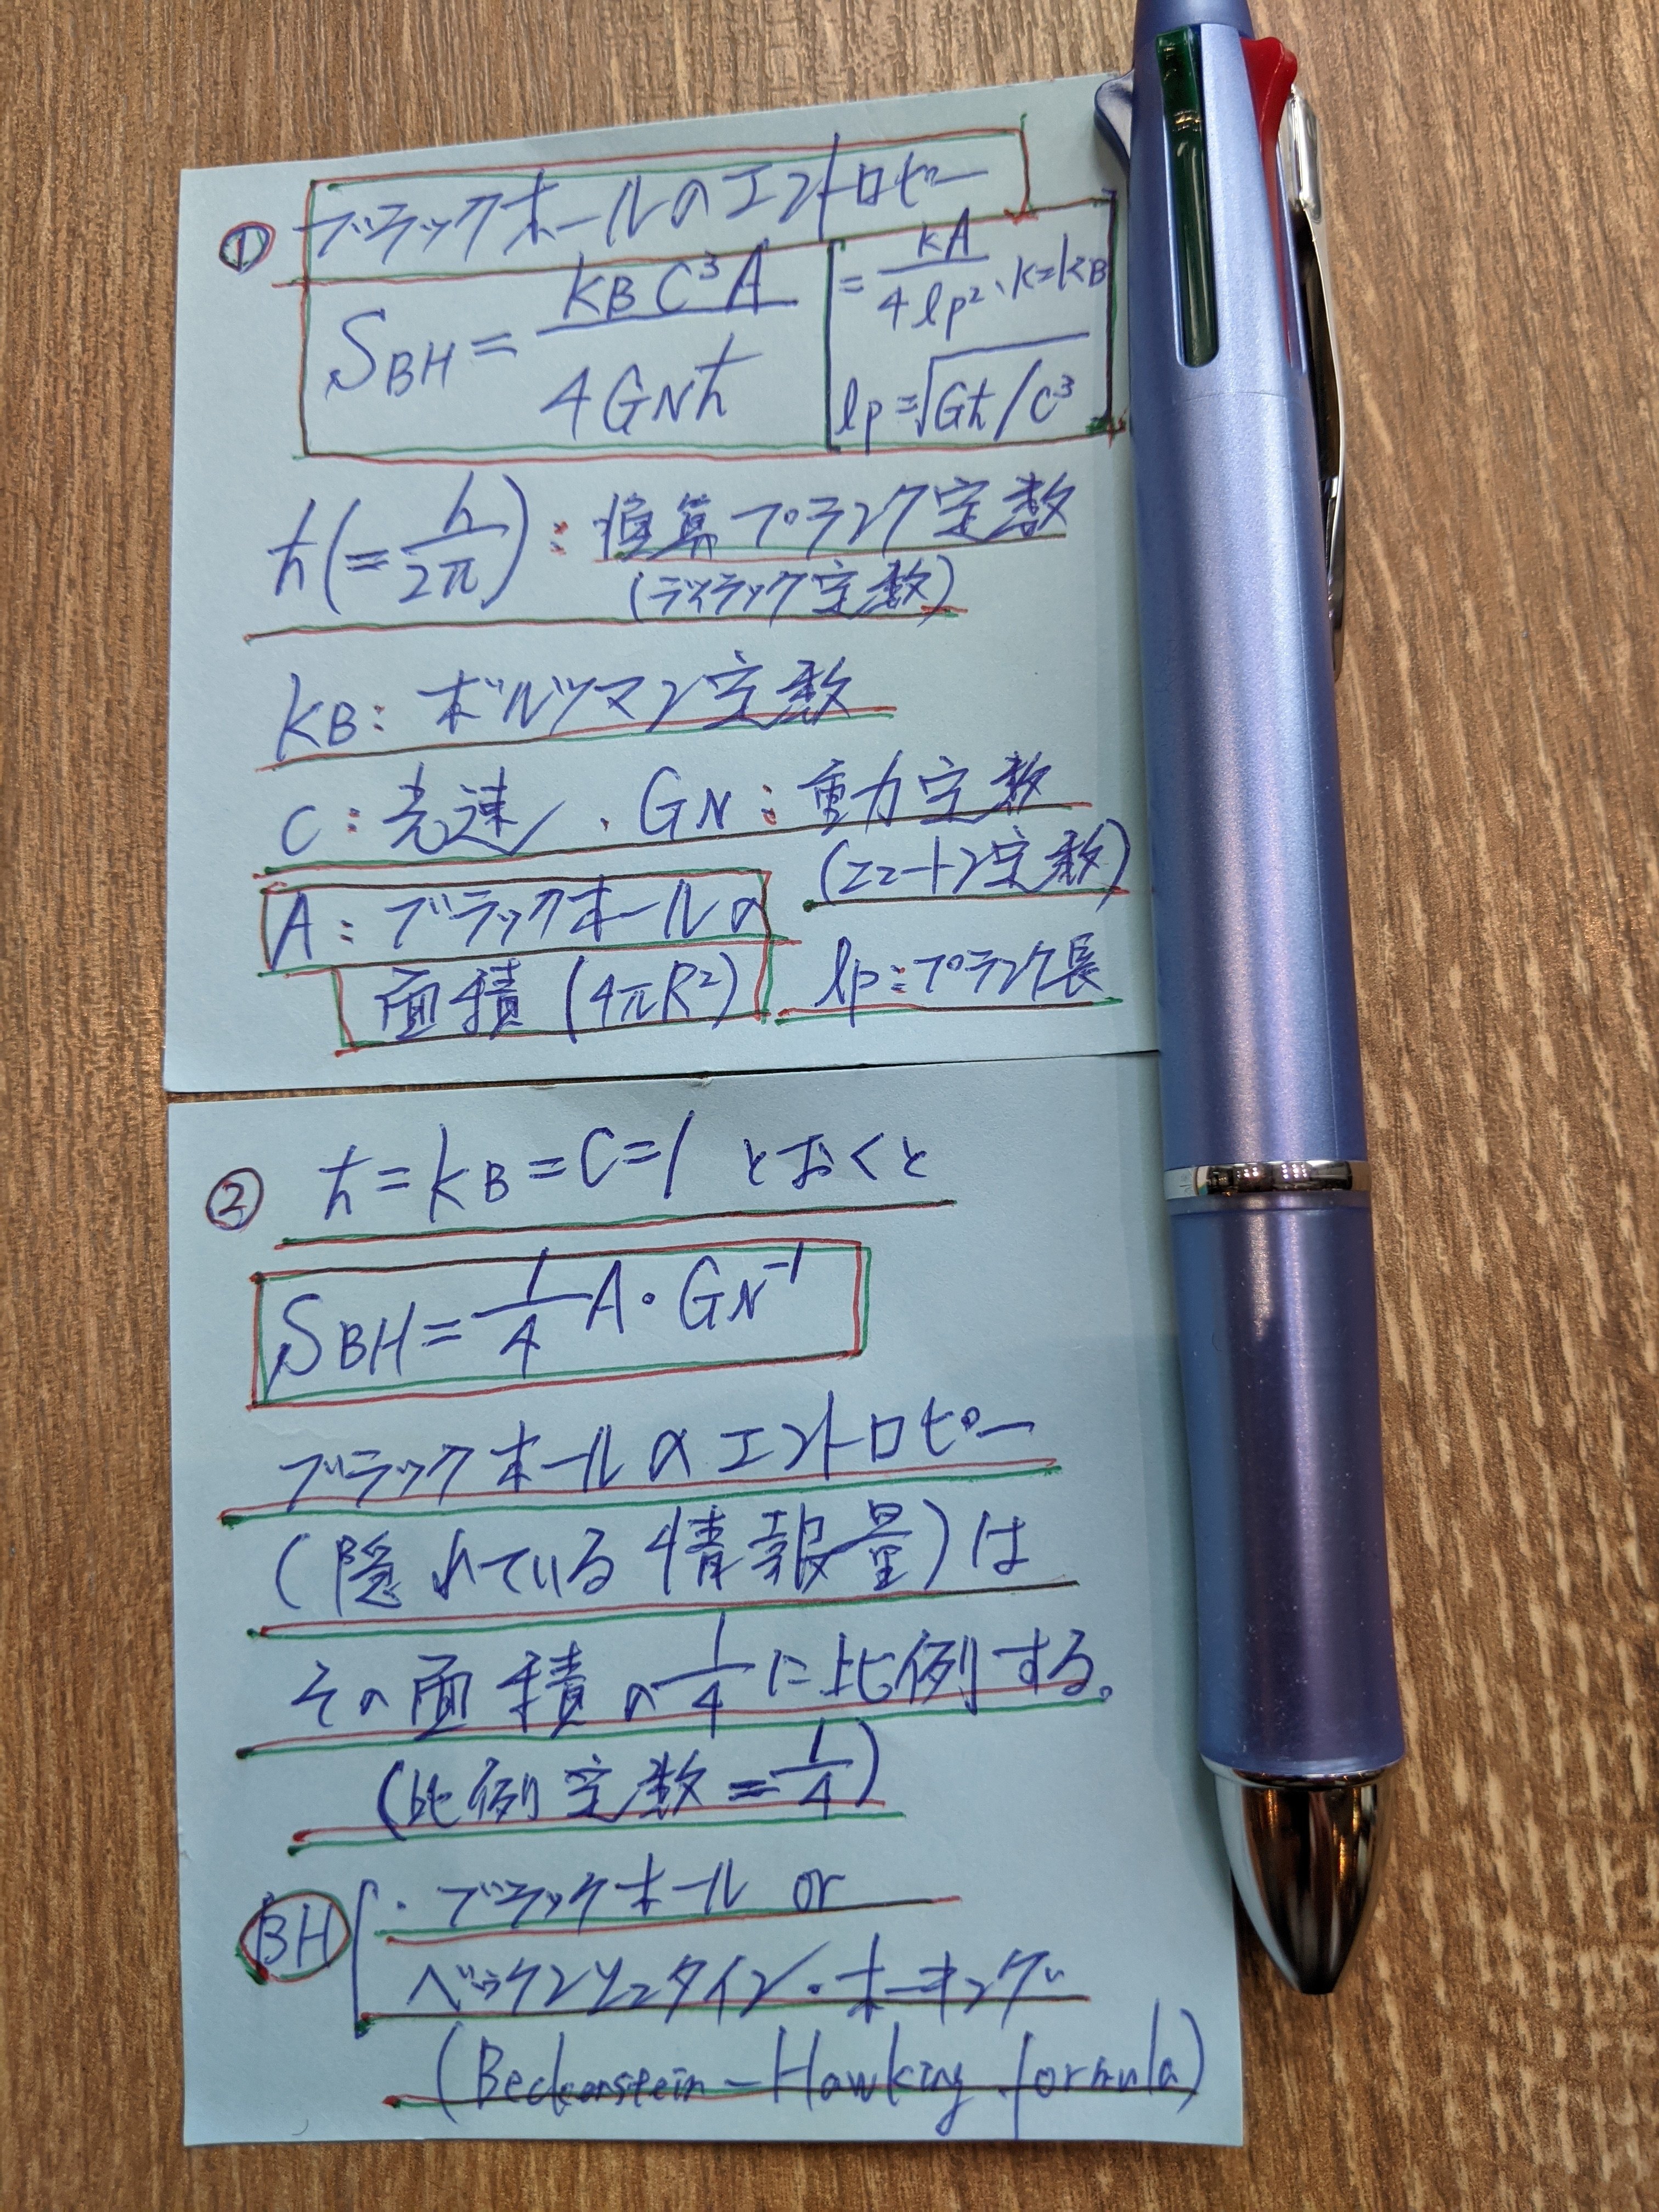 ① ブラックホールのエントロピー
S_BH = k_B C³A / 4G_Nħ
= kA / 4lp²、k=k_B
lp=√Għ/c³
ħ(=h/2π):換算プランク定数
(ディラック定数)
k_B:ボルツマン定数
C:光速、G_N:重力定数
(ニュートン定数)
A:ブラックホールの
面積(4πR²)
lp:プランク長
② ħ=k_B=C=1 とおくと
S_BH=1/4 A・G_N⁻¹
ブラックホールのエントロピー
(隠れている情報量)は
その面積の1/4に比例する。
(比例定数=1/4)
BH ・ブラックホール or
ベッケンシュタイン・ホーキング
(Beckenstein-Hawking formula)